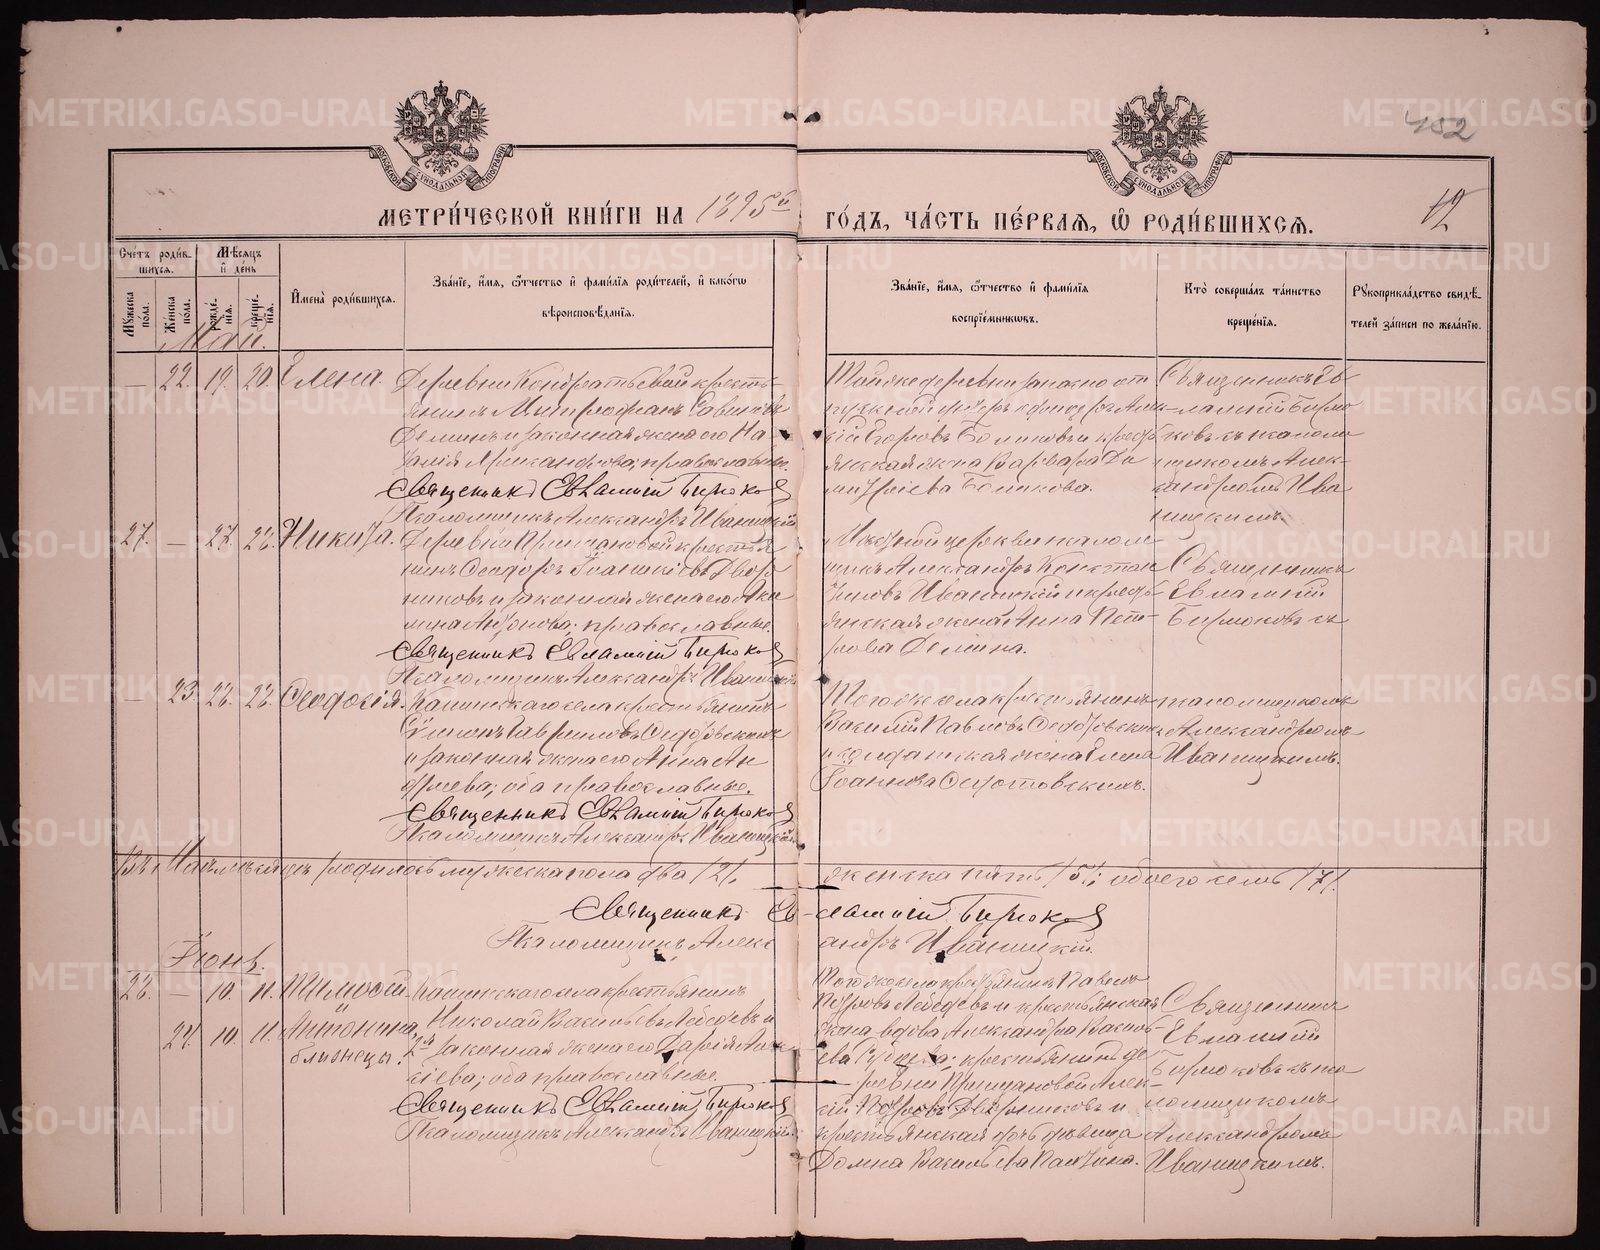 МЕТРИ́ЧЕСКОЙ КНИ́ГИ НА 1895й ГО́ДЪ, ЧА́СТЬ ПЕ́РВАЯ, Ѡ РОДИ́ВШИХСЯ.
452
12
Сче́тъ роди́вшихся.
Мꙋ́жеска по́ла.
Же́нска по́ла.
Мѣ́сяцъ и҆ де́нь
рожде́нїѧ.
креще́нїѧ.
И҆мена̀ роди́вшихсѧ.
Зва́нїе, и҆́мѧ, ѻ҆́тчество и҆ фами́лїѧ роди́телей, и҆ како́гѡ
вѣроисповѣ́данїѧ.
Зва́нїе, и҆́мѧ, ѻ҆́тчество и҆ фами́лїѧ
воспрїе́мникѡвъ.
Кто̀ соверша́лъ та́инство
креще́нїѧ.
Рꙋкоприкла́дство свидѣ́телей за́писи по жела́нїю.
Май.
— 22. 19. 20. Елена.
Деревни Кондратьевой кресть-
янинъ Митрофанъ Саввинъ
Деминъ и законная жена его На-
талія Никандрова; православные.
Священникъ Евлампій Бирюковъ
Псаломщикъ Александръ Иваницкій
Той же деревни
Егоровъ Боликовъ и кресть-
янская жена Варвара Ди-
митріева Боликова.
Священникъ Ев-
лампій Бирю-
ковъ съ псалом-
щикомъ Алек-
сандромъ Ива-
ницкимъ.
27. — 27. 28. Никита.
крестья-
нинъ Ѳеодоръ Іоанникіевъ Двор-
никовъ и законная жена его Аки-
лина Антонова; православные.
Священникъ Евлампій Бирюковъ
Псаломщикъ Александръ Иваницкій
Мѣстной церкви псалом-
щикъ Александръ Констан-
тиновъ Иваницкій и кресть-
янская жена Анна Пет-
рова Демина.
Священникъ
Евлампій
Бирюковъ съ
— 23. 28. 28. Ѳеодосія.
Кашинскаго села крестьянинъ
Сѵмеонъ Гавриловъ Ѳедотовскихъ
и законная жена его Анна Ан-
дреева; оба православные.
Священникъ Евлампій Бирюковъ
Псаломщикъ Александръ Иваницкій.
Того же села крестьянинъ
Василій Павловъ Ѳедотовскихъ
и солдатская жена Елена
Іоаннова Ѳедотовскихъ.
псаломщикомъ
Александромъ
Иваницкимъ.
Въ Маѣ мѣсяцѣ родилось мужеска пола два /2/, женска пять /5/; обоего семь /7/.
Священникъ Евлампій Бирюковъ
Псаломщикъ Александръ Иваницкій.
Іюнь.
28. — 10. 11. Тимоѳей.
— 24. 10. 11. Антонина,
близнецы.
Кашинскаго села крестьянинъ
Николай Васильевъ Лебедевъ и
законная жена его Дарія Алек-
сіева; оба православные.
Священникъ Евлампій Бирюковъ
Псаломщикъ Александръ Иваницкій.
Того же села крестьянинъ Павелъ
Петровъ Лебедевъ и крестьянская
жена вдова Александра Василь-
ева; крестьянинъ де-
ревни Алек-
сій Петровъ Дворниковъ и
крестьянская дочь дѣвица
Домна Васильева
Священникъ
Евлампій
Бирюковъ съ пса-
ломщикомъ
Александромъ
Иваницкимъ.
METRIKI.GASO-URAL.RU